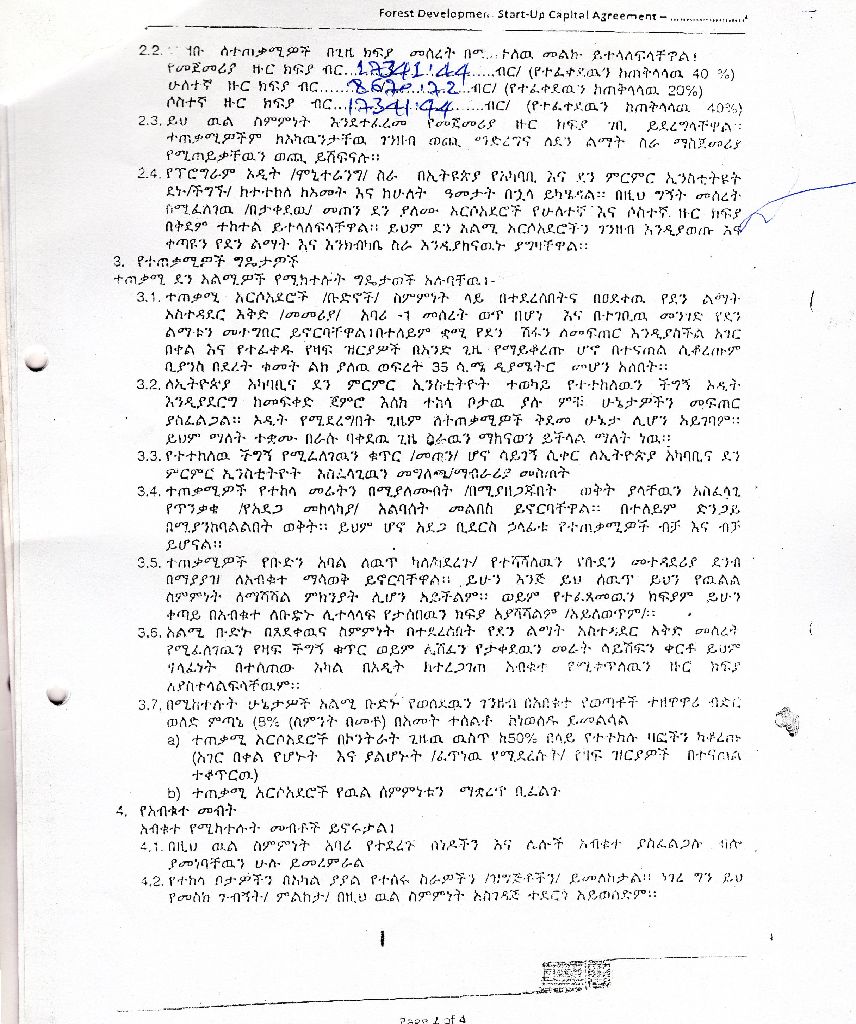 Forest Development Start-Up Capital Agreement – ........................
2.2. ለተጠቃሚዎች በጊዜ ክፍያ መሰረት በሚ ተለዉ መልኩ ይተላለፍላቸዋል፤
የመጀመሪያ ዙር ክፍያ ብር...17341.44.....ብር/ (የተፈቀደዉን ከጠቅላላዉ 40 %)
ሁለተኛ ዙር ክፍያ ብር.....8670.72..ብር/ (የተፈቀደዉን ከጠቅላላዉ 20%)
ሶስተኛ ዙር ክፍያ ብር...17341.44......ብር/ (የተፈቀደዉን ከጠቅላላዉ 40%)
2.3. ይህ ዉል ስምምነት እንደተፈረመ የመጀመሪያ ዙር ክፍያ ገቢ ይደረግላቸዋል።
ተጠቃሚዎችም ከአካዉንታቸዉ ገንዘብ ወጪ ማድረግና ለደን ልማት ስራ ማስጀመሪያ
የሚጠይቃቸዉን ወጪ ይሸፍናሉ።
2.4. የፕሮግራም ኦዲት /ሞኒተሪንግ/ ስራ በኢትዩጵያ የአካባቢ እና ደን ምርምር ኢንስቲትዩት
ደኑ/ችግኙ/ ከተተከለ ከአመት እና ከሁለት ዓመታት በኋላ ይካሄዳል። በዚህ ግኝት መሰረት
በሚፈለገዉ /በታቀደዉ/ መጠን ደን ያለሙ አርሶአደሮች የሁለተኛ እና ሶስተኛ ዙር ክፍያ
በቅደም ተከተል ይተላለፍላቸዋል። ይህም ደን አልሚ አርሶአደሮችን ገንዘብ እንዲያወጡ እና
ቀጣዩን የደን ልማት እና እንክብካቤ ስራ እንዲያከናዉኑ ያግዛቸዋል።
3. የተጠቃሚዎች ግዴታዎች
ተጠቃሚ ደን አልሚዎች የሚከተሉት ግዴታወች አሉባቸዉ፤-
3.1. ተጠቃሚ አርሶአደሮች /ቡድኖች/ ስምምነት ላይ በተደረሰበትና በፀደቀዉ የደን ልማት
አስተዳደር እቅድ /መመሪያ/ አባሪ -1 መሰረት ወጥ በሆነ እና በተገቢዉ መንገድ የደን
ልማቱን መተግበር ይኖርባቸዋል፤በተለይም ቋሚ የደን ሽፋን ለመፍጠር እንዲያስችል አገር
በቀል እና የተፈቀዱ የዛፍ ዝርያዎች በአንድ ጊዜ የማይቆረጡ ሆኖ በተናጠል ሲቆረጡም
ቢያንስ በደረት ቁመት ልክ ያለዉ ወፍረት 35 ሳ.ሜ ዲያሜትር መሆን አለበት።
3.2. ለኢትዮጵያ አካባቢና ደን ምርምር ኢንስቲትዮት ተወካይ የተተከለዉን ችግኝ ኦዲት
እንዲያደርግ ከመፍቀድ ጀምሮ እስከ ተከላ ቦታዉ ያሉ ምቹ ሁኔታዎችን መፍጠር
ያስፈልጋል። ኦዲት የሚደረግበት ጊዜም ለተጠቃሚዎች ቅድመ ሁኔታ ሊሆን አይገባም።
ይህም ማለት ተቋሙ በራሱ ባቀደዉ ጊዜ ስራዉን ማከናወን ይችላል ማለት ነዉ።
3.3. የተተከለዉ ችግኝ የሚፈለገዉን ቁጥር /መጠን/ ሆኖ ሳይገኝ ሲቀር ለኢትዮጵያ አካባቢና ደን
ምርምር ኢንስቲትዮት አስፈላጊዉን መግለጫ/ማብራሪያ መስጠት
3.4. ተጠቃሚዎች የተከላ መሬትን በሚያለሙበት /በሚያዘጋጁበት ወቅት ያላቸዉን አስፈላጊ
የጥንቃቄ /የአደጋ መከላከያ/ አልባሳት መልበስ ይኖርባቸዋል። በተለይም ድንጋይ
በሚያንከባልልበት ወቅት። ይህም ሆኖ አደጋ ቢደርስ ኃላፊቱ የተጠቃሚዎች ብቻ እና ብቻ
ይሆናል።
3.5. ተጠቃሚዎች የቡድን አባል ለዉጥ ካለ/ከደረገ/ የተሻሻለዉን የቡድን መተዳደሪያ ደንብ
በማያያዝ ለአብቁተ ማሳወቅ ይኖርባቸዋል። ይሁን እንጅ ይህ ለዉጥ ይህን የዉልል
ስምምነት ለማሻሻል ምክንያት ሊሆን አይችልም። ወይም የተፈጸመዉን ክፍያም ይሁን
ቀጣይ በአብቁተ ለቡድኑ ሊተላላፍ የታሰበዉን ክፍያ አያሻሻልም /አይለወጥም/።
3.6. አልሚ ቡድኑ በጸደቀዉና ስምምነት በተደረሰበት የደን ልማት አስተዳደር እቅድ መሰረት
የሚፈለገዉን የዛፍ ችግኝ ቁጥር ወይም ሊሸፈን የታቀደዉን መሬት ሳይሸፍን ቀርቶ ይህም
ሃላፊነት በተሰጠው አካል በኦዲት ከተረጋገጠ አብቁተ የሚቀጥለዉን ዙር ክፍያ
ለያስተላልፍላቸዉም።
3.7. በሚከተሉት ሁኔታዎች አልሚ ቡድኑ የወሰደዉን ገንዘብ በአብቁተ የወጣቶች ተዘዋዋሪ ብድር
ወለድ ምጣኔ (8% (ስምንት በመቶ) በአመት ተሰልቶ ከነወለዱ ይመልሳል
a) ተጠቃሚ አርሶአደሮች በኮንትራት ጊዜዉ ዉስጥ ከ50% በላይ የተተከሉ ዛፎችን ከቆረጡ
(አገር በቀል የሆኑት እና ያልሆኑት /ፈጥነዉ የሚደረሱት/ የዛፍ ዝርያዎች በተናጠል
ተቆጥርዉ)
b) ተጠቃሚ አርሶአደሮች የዉል ስምምነቱን ማቋረጥ ቢፈልጉ
4. የአብቁተ መብት
አብቁተ የሚከተሉት መብቶች ይኖሩታል፤
4.1. በዚህ ዉል ስምምነት አባሪ የተደረጉ ሰነዶችን እና ሌሎች አብቁተ ያስፈልጋሉ ብሎ
ያመነባቸዉን ሁሉ ይመረምራል
4.2. የተከላ ቦታዎችን በአካል ያያል የተሰሩ ስራዎችን /ዝግጅቶችን/ ይመለከታል። ነገረ ግን ይህ
የመስክ ጉብኝት/ ምልከታ/ በዚህ ዉል ስምምነት አስገዳጅ ተደርጎ አይወሰድም።
Page 2 of 4